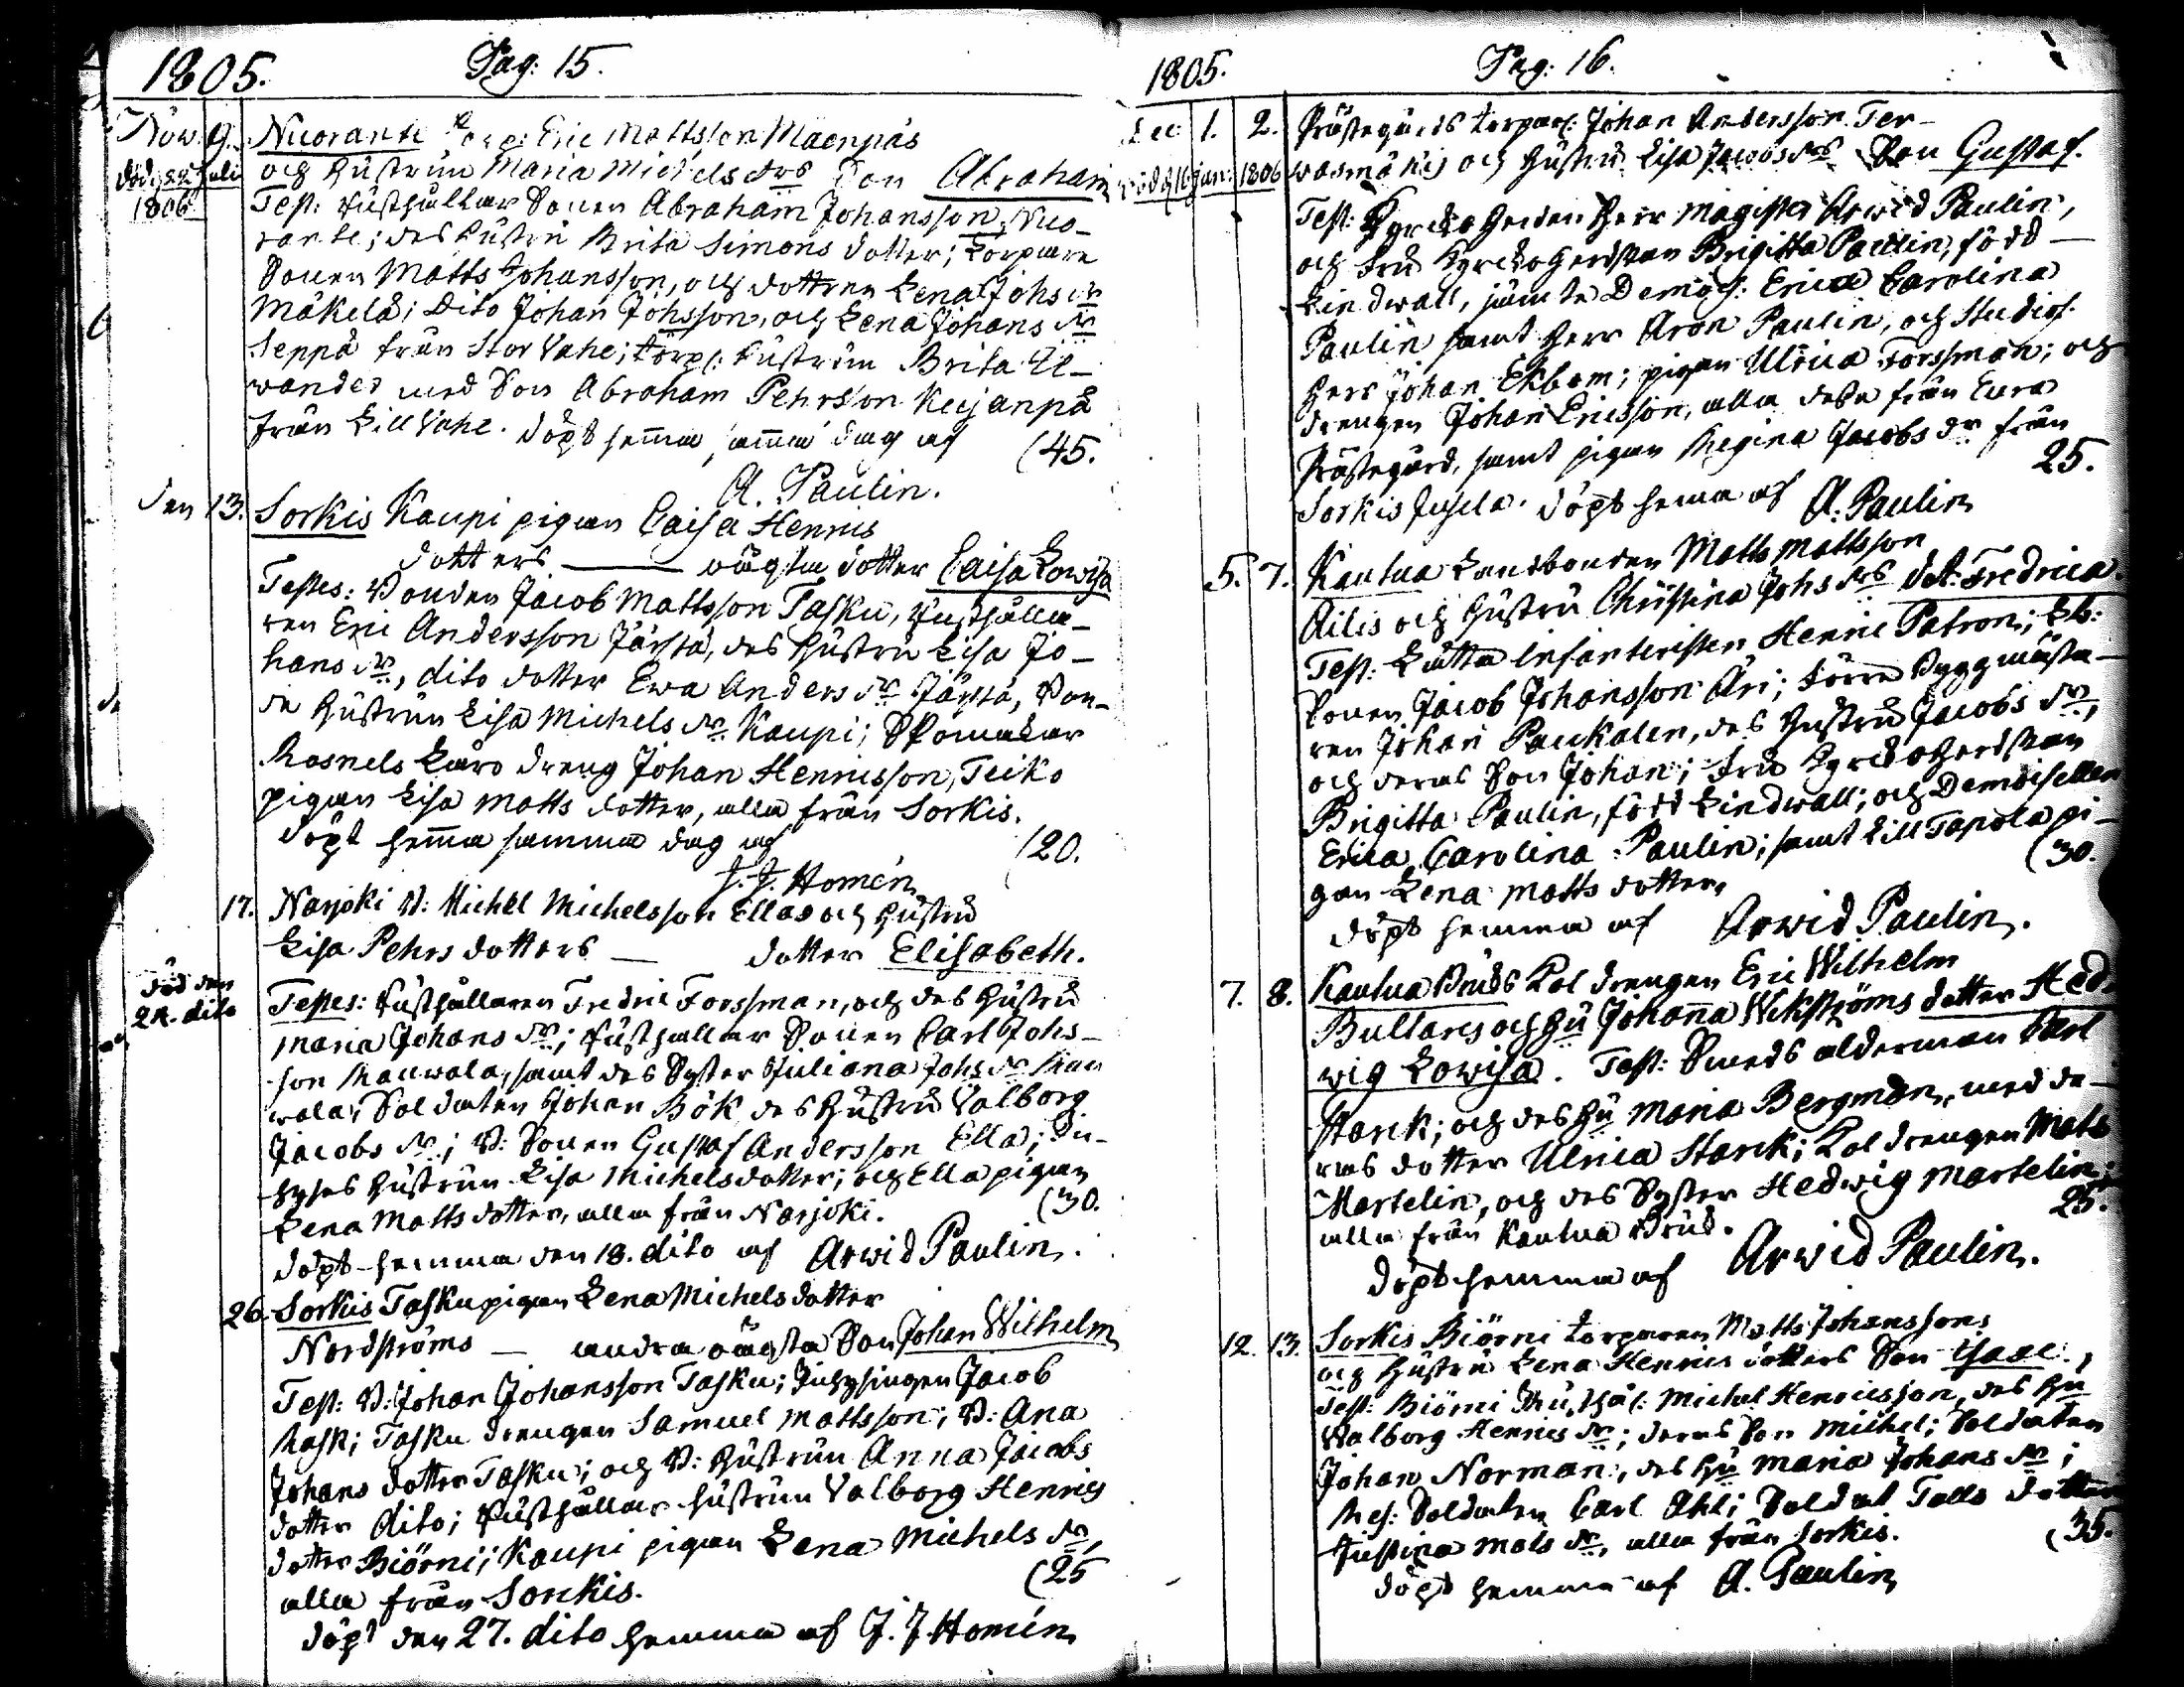 1805. Pag: 15.
Nov. 9. Nuorante Torp: Eric Mattsson Mäenpäs
död 22 Juli och hustrun Maria Michels drs Son Abraham
1806 Test: Rusthållar Sonen Abraham Johansson, Nuo-
rante; des hustru Brita Simons dotter; Torpare
Sonen Matts Johansson, och dottren Lena Johs dr
Mäkelä; Dito Johan Johsson, och Lena Johans dr
Seppä från Stor Vahe; Torp: hustrun Brita
wander med Son Abraham Pehrsson Keijanpä
från Lill Vahe. döpt hema, sama dag af (45.
A. Paulin.
Den 13. Sorkis Kaupi pigan Caisa Henrics
dotters — oägta dotter Caisa Lowisa
Testes: Bonden Jacob Mattsson Tasku, Rusthålla-
ren Eric Andersson Järstä, des hustru Lisa Jo-
hans dr, dito dotter Ewa Anders dr Järstä, Bon-
de hustrun Lisa Michels dr Kaupi; Skomakar
Rosnels Läro dreng Johan Henricsson, Teiko
pigan Lisa Matts dotter, alla från Sorkis.
döpt hema samma dag af (20.
J. J. Homén
17. Narjoki B: Michel Michelsson Ellas och hustru
Lisa Pehrs dotters — dotter Elisabeth.
död den Testes: Rusthållaren Fredric Forssman, och des hustru
24. dito Maria Johans dr; Rusthållar Sonen Carl Johs-
son Mauwala, samt des Syster Juliana Johs dr Mau
wala; Soldaten Johan Bök des hustru Valborg
Jacobs dr; B: Sonen Gustaf Andersson Ella; In-
hyses hustrun Lisa Michelsdotter; och Ella pigan
Lena Matts dotter, alla från Narjoki. (30.
döpt hemma den 18. dito af Arwid Paulin.
26. Sorkis Tasku pigan Lena Michels dotter
Nordströms — andra oägta Son Johan Wilhelm
Test: B: Johan Johansson Tasku; Inhysingen Jacob
Rask; Tasku drengen Samuel Mattsson; B: Ana
Johans dotter Tasku; och B: hustrun Anna Jacobs
dotter dito; Rusthållar hustrun Valborg Henrics
dotter Biörni; Kaupi pigan Lena Michels dr,
alla från Sorkis. (25
döpt den 27. dito hemma af J. J. Homén
1805. Pag: 16.
Dec 1. 2. Prästegårds torpar: Johan Andersson Ter-
död d 16 Jan: 1806 wasmäkis och hustru Lisa Jacobs drs Son Gustaf.
Test: Kyrckoherden Herr Magister Arwid Paulin,
och Fru Kyrckoherdskan Brigitta Paulin, född
Lindwall, jämte Demois: Erica Carolina
Paulin samt Herr Aron Paulin, och Studios.
Herr Johan Ekbom; pigan Ulrica Forssman; och
drengen Johan Ericsson, alla desa från Eura
Prästegård, samt pigan Regina Jacobs dr från
Sorkis . döpt hema af A. Paulin 25.
5. 7. Kautua Landbonden Matts Mattsson
Ailis och hustru Christina Johs drs dot: Fredrica.
Test: Lätta Infanteristen Henric Patron; Lb:
Sonen Jacob Johansson Äri; förre Byggmästa-
ren Johan Paukalen, des hustru Jacobs dr,
och deras Son Johan; Fru Kyrckoherdskan
Brigitta Paulin, född Lindwall; och Demoisellen
Erica Carolina Paulin; samt Lill Tapola pi-
gan Lena Matts dotter, (30.
döpt hemma af Arwid Paulin.
7. 8. Kautua Bruks Kol drengen Eric Wilhelm
Bullares och hu Johanna Wekströms dotter Hed-
wig Lowisa. Test: Smeds alderman Carl
Starck; och des hu Maria Bergman, med de-
ras dotter Ulrica Starck; Kol drengen Mats
Martelin, och des Syster Hedwig Martelin;
alla från Kautua Bruk. 25.
döpt hemma af Arwid Paulin.
12. 13. Sorkis Biörni torparen Matts Johanssons
och hustru Lena Henrics dotters Son Isaac,
Test: Biörni Rusthål: Michel Henricsson, des hu
Walborg Henrics dr; deras Son Michel; Soldaten
Johan Norman, des hu Maria Johans dr;
Res: Soldaten Carl Ahl; Soldat Talls dotter
Justina Mats dr, alla från Sorkis. (35.
döpt hemma af A. Paulin